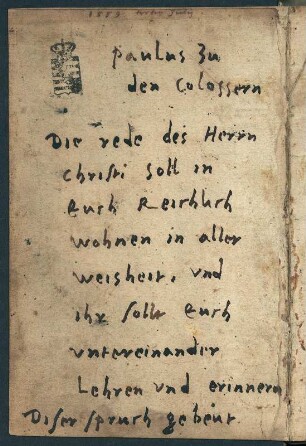 1553
paulus zu
den Colossern
Die rede des Herrn
Christi soll in
Euch Reichlich
wohnen in aller
weisheit, vnd
ihr sollt Euch
vntereinander
Lehren vnd erinnern
Diser spruch gebeut